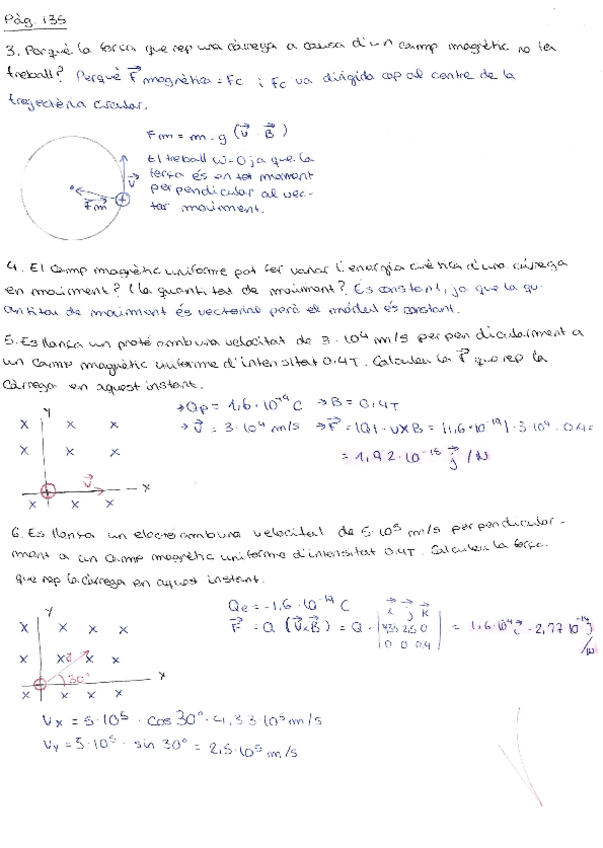 Pàg. 135
3. Perquè la força que rep una càrrega a causa d'un camp magnètic no fa
treball? Perquè F magnètica = Fc i Fc va dirigida cap al centre de la
trajectòria circular.
Fm = m · g (v · B)
El treball W=0 ja que la
força és en tot moment
perpendicular al vec-
tor moviment.
v
Fm
4. El camp magnètic uniforme pot fer variar l'energia cinètica d'una càrrega
en moviment? I la quantitat de moviment? És constant, ja que la qu-
antitat de moviment és vectorial però el mòdul és constant.
5. Es llança un protó amb una velocitat de 3·10⁴ m/s perpendicularment a
un camp magnètic uniforme d'intensitat 0.4T. Calculeu la F que rep la
càrrega en aquest instant.
→ Qp = 1,6·10⁻¹⁹ C → B = 0,4T
→ v = 3·10⁴ m/s → F = |Q| · v x B = |1,6·10⁻¹⁹| · 3·10⁴ · 0.4 =
= 1,92·10⁻¹⁵ j /N
Y
x x x
x x x
v
x
x x x
6. Es llança un electró amb una velocitat de 5·10⁵ m/s perpendicular-
ment a un camp magnètic uniforme d'intensitat 0.4T. Calculeu la força
que rep la càrrega en aquest instant.
Qe = -1,6·10⁻¹⁹ C
i j k
F = Q (v x B) = Q · 2,5 0
0 0 0.4
/N
Y
x x x x
x x v x x
30°
x
x x x x
Vx = 5·10⁵ · cos 30° · 4,33·10⁵ m/s
Vy = 5·10⁵ · sin 30° = 2,5·10⁵ m/s